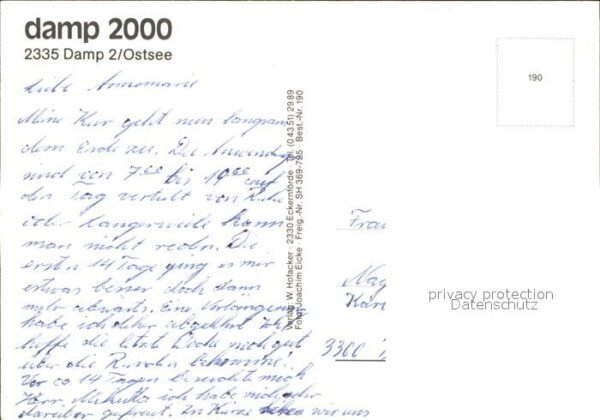 damp 2000
2335 Damp 2/Ostsee
Liebe Annemarie
Meine Kur geht nun langsam
dem Ende zu. Die Anwendung
sind von 7 00 bis 19 00 auf
den Tag verteilt von Ruhe
oder Langerweile kann
man nicht reden. Die
ersten 14 Tage ging es mir
etwas besser doch dann
mehr abwärts. Eine Verlängerung
habe ich daher abgelehnt. Ich
hoffe die letzte Woche noch gut
über die Runden bekomme.
Vor ca 14 Tagen besuchte mich
Herr habe mich sehr
darüber gefreut. In Kürze sehen wir uns
Verlag: W. Hofacker · 2330 Eckernförde · Tel. (0 43 51) 29 89
Foto: Joachim Eicke · Freig.-Nr. SH 369-795 · Best.-Nr. 190
190
Frau
Kar
3300
privacy protection
Datenschutz